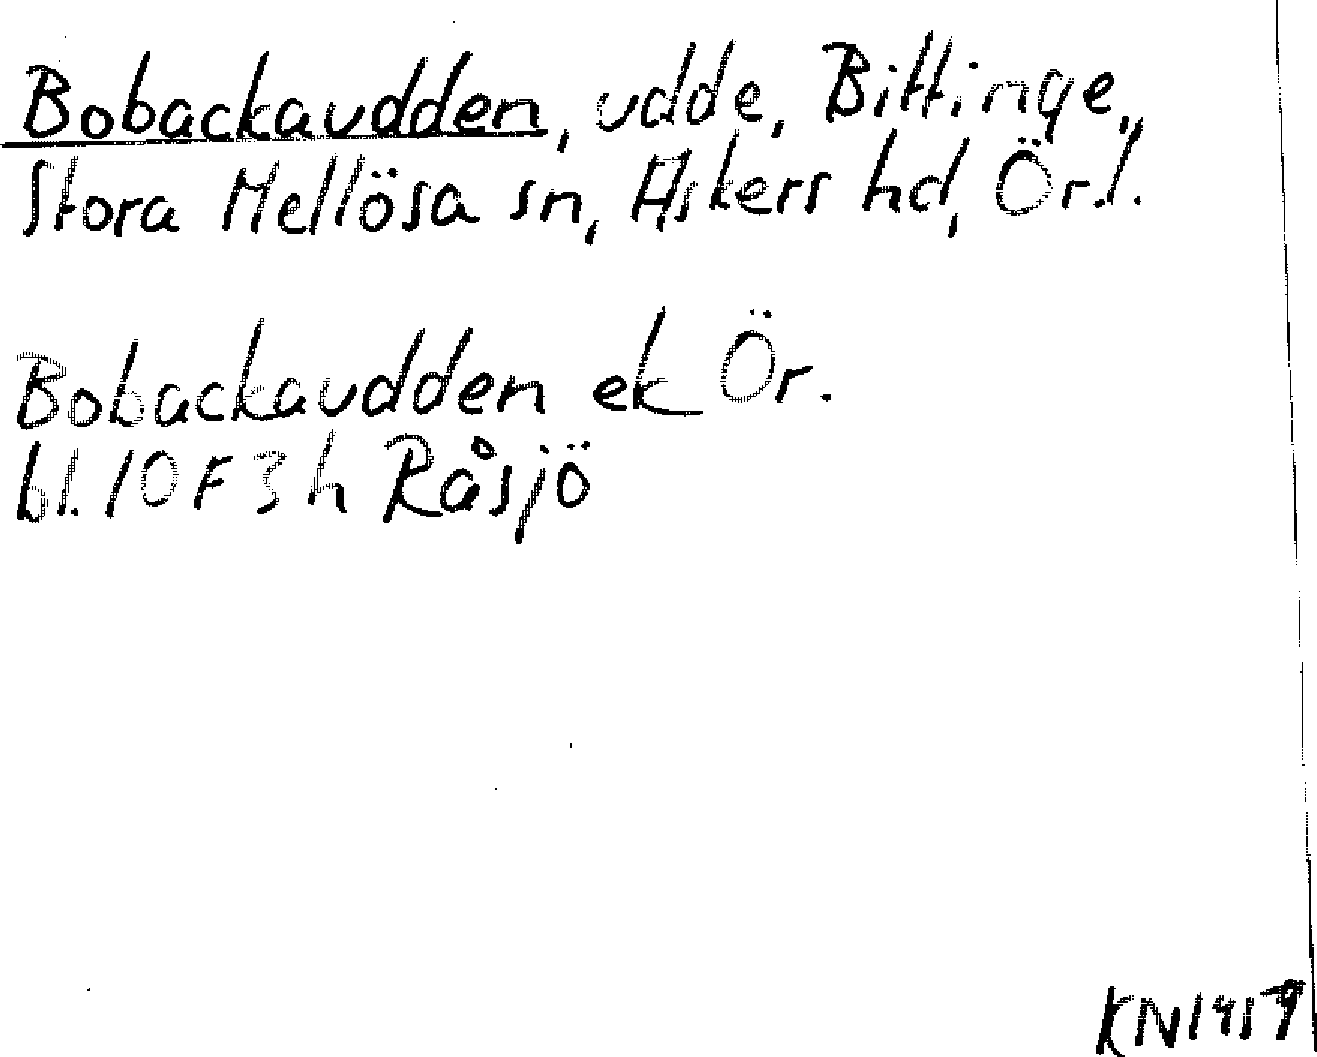 Bobackaudden, udde, Bittinge,
Stora Mellösa sn, Askers hd, Ör.l.
Bobackaudden ek Ör.
bl. 10F 3h Råsjö